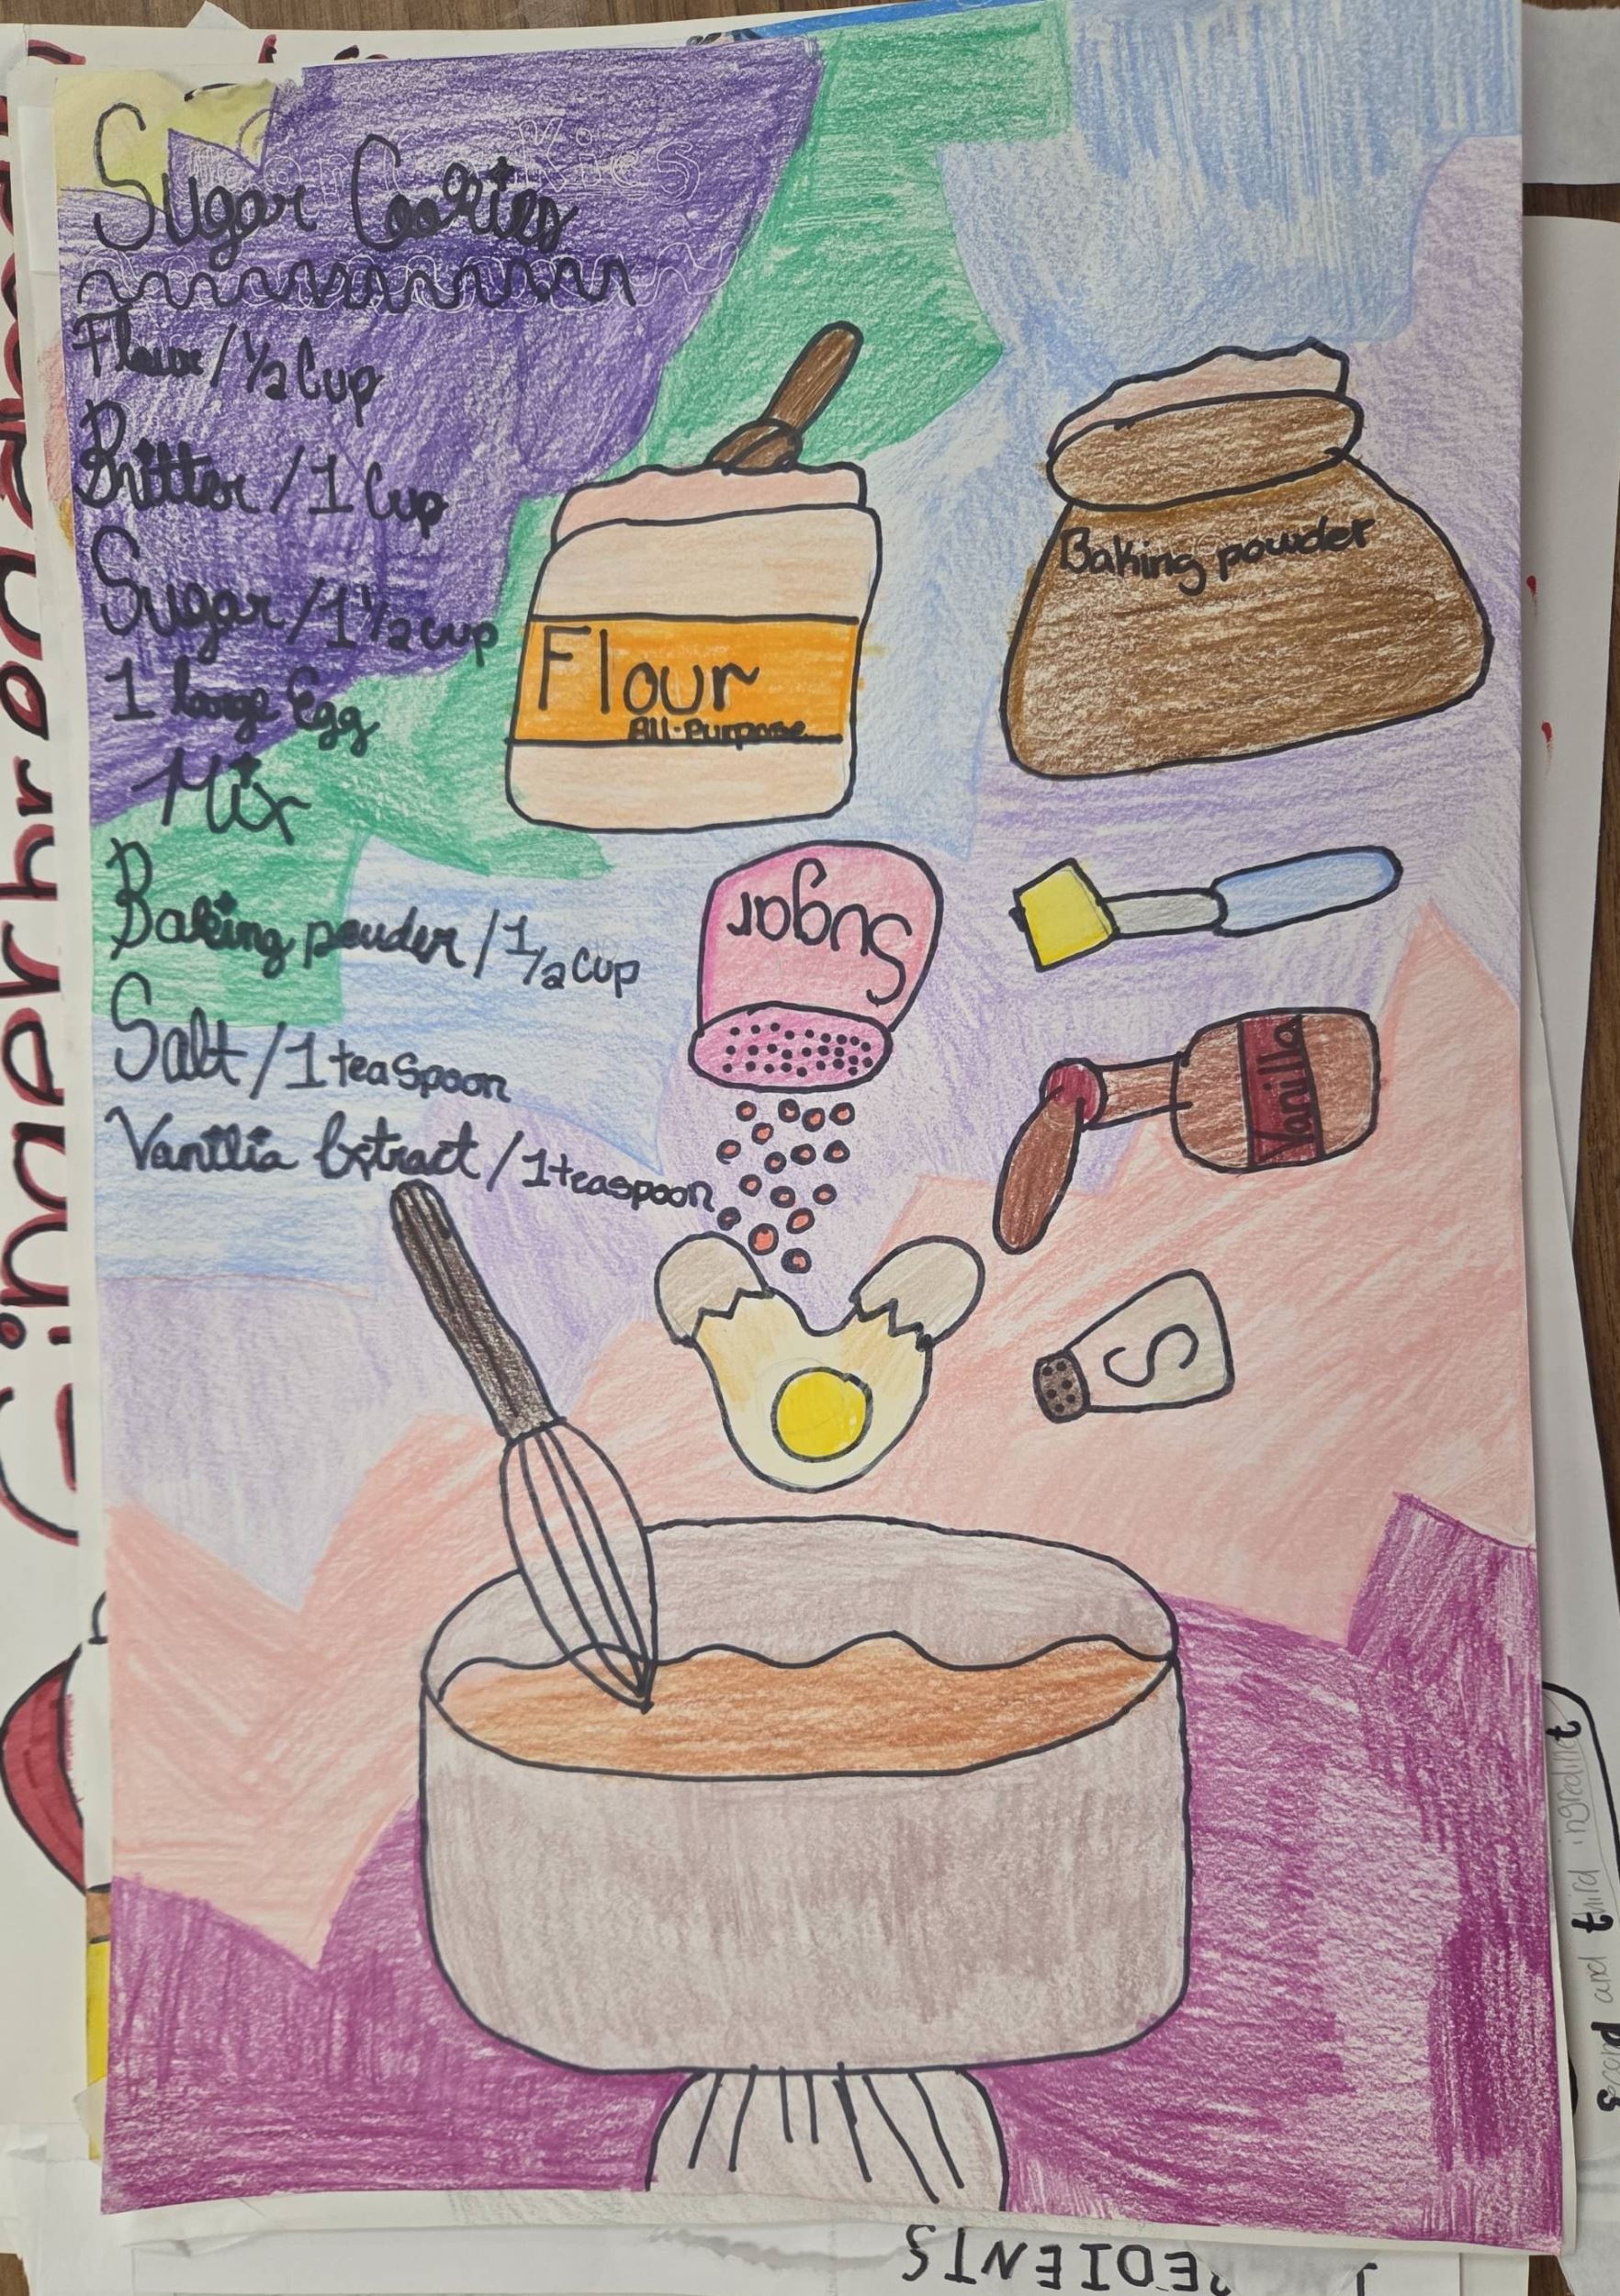 Sugar Cookies
Flour / 1/2 Cup
Britter / 1 Cup
Sugar / 1 1/2 cup
1 large Egg
Mix
Baking powder / 1/2 cup
Salt / 1 teaspoon
Vanilia Extract / 1 teaspoon
Flour
All-Purpose
Baking powder
Sugar
Vanilla
S
second and third ingredient